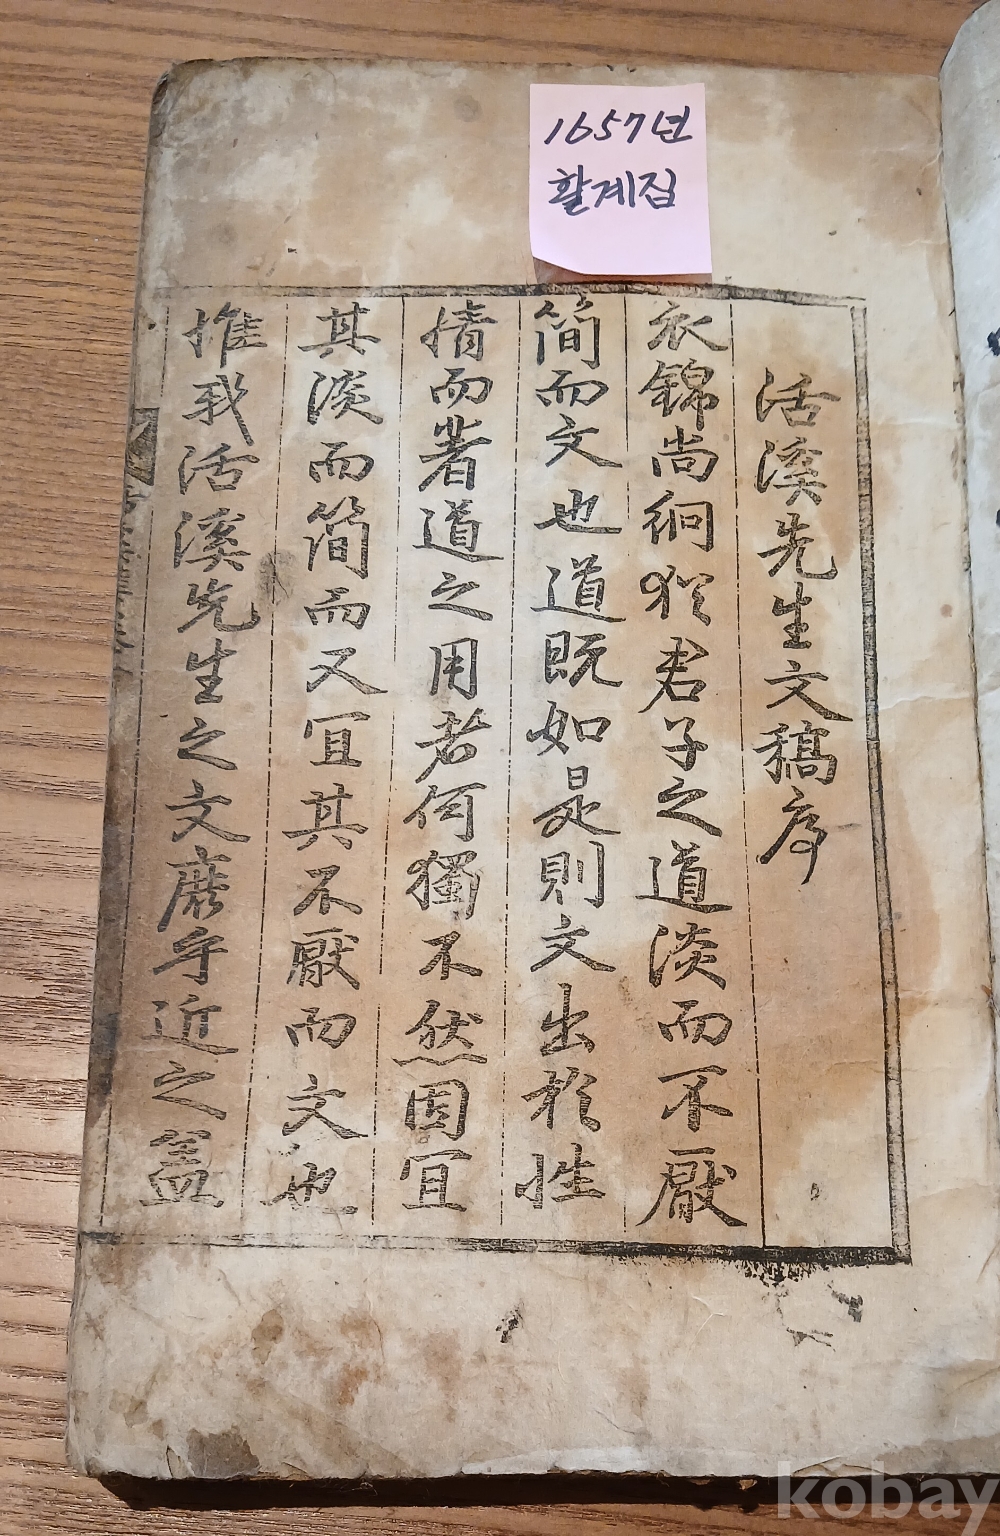 1657년
활계집
活溪先生文稿序
衣錦尚絅猶君子之道淡而不厭
簡而文也道旣如是則文出於性
情而著道之用者何獨不然因宜
其淡而簡而又宜其不厭而文也
惟我活溪先生之文庶乎近之盖
kobay